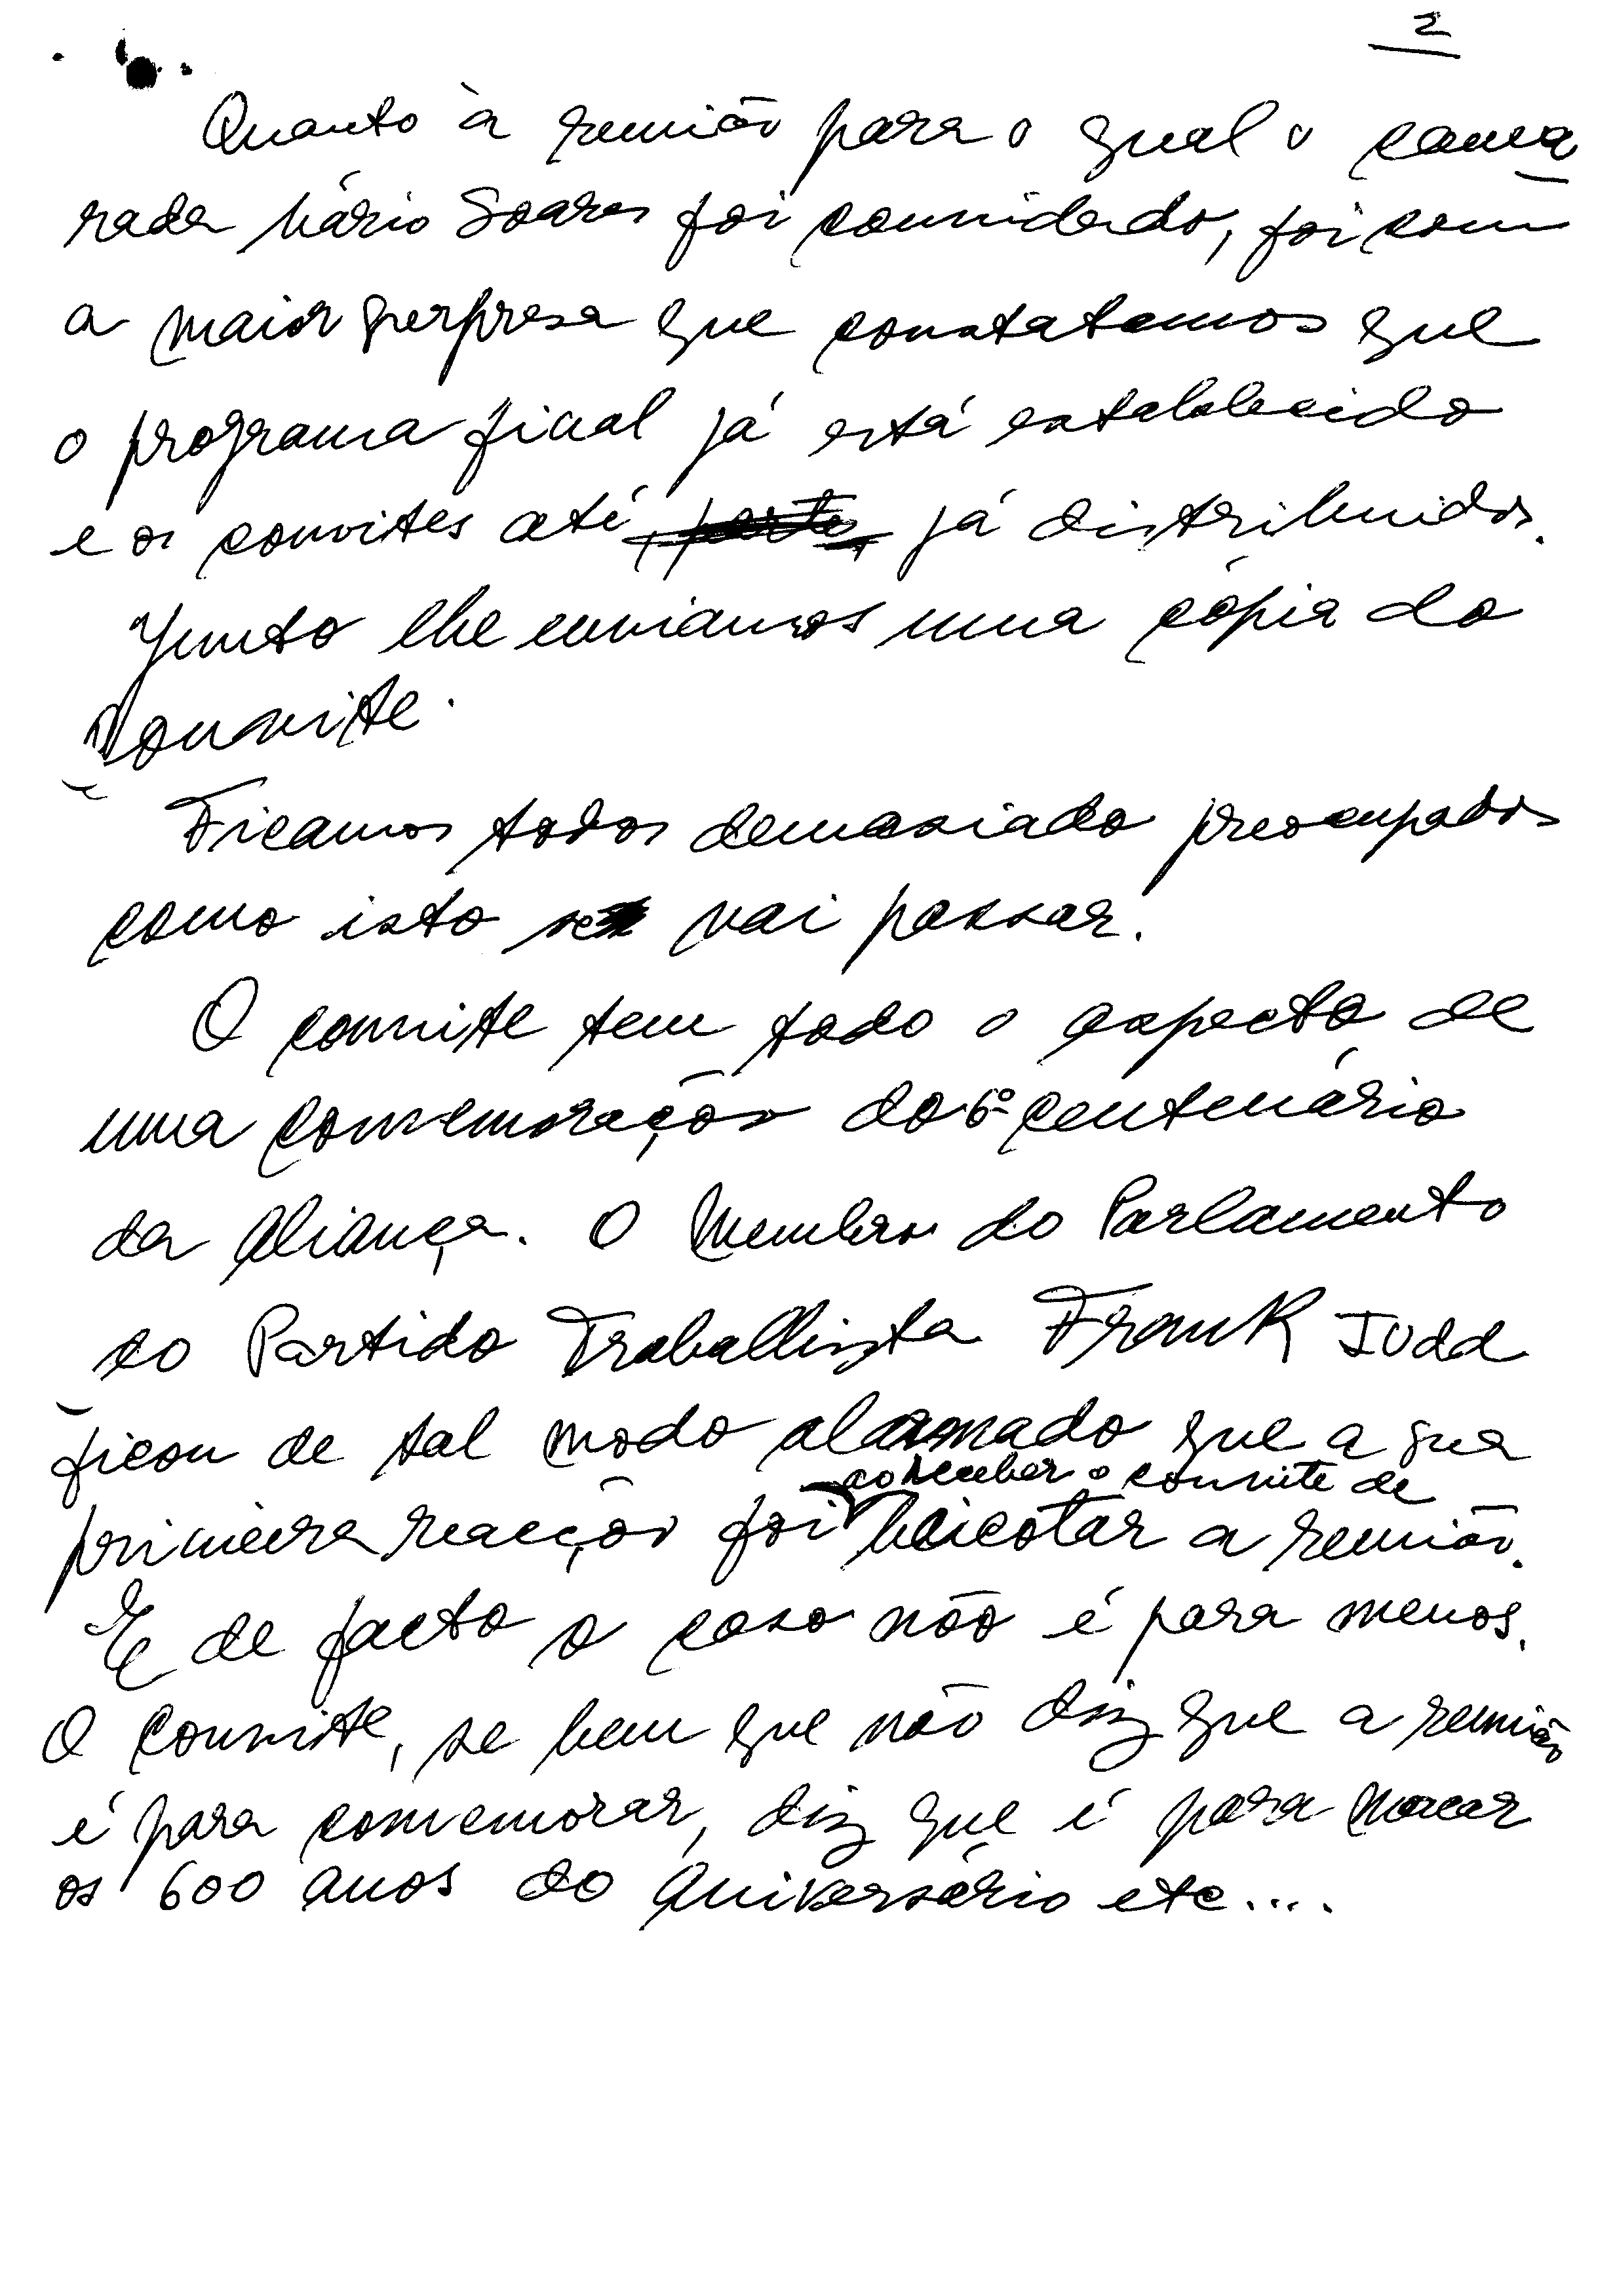 2
Quanto à reunião para o qual o cama
rada Mário Soares foi convidado, foi com
a maior surpresa que constatamos que
o programa final já está estabelecido
e os convites até já distribuidos.
Junto lhe enviamos uma cópia do
convite.
Ficamos todos demasiado preocupados
como isto se vai passar.
O convite tem todo o aspecto de
uma comemoração do 6º centenário
da aliança. O Membro do Parlamento
do Partido Traballista Frank Judd
ficou de tal modo alarmado que a sua
ao receber o convite de
primeira reacção foi boicotar a reunião.
E de facto o caso não é para menos.
O convite, se bem que não diz que a reunião
é para comemorar, diz que é para marcar
os 600 anos do aniversário etc....